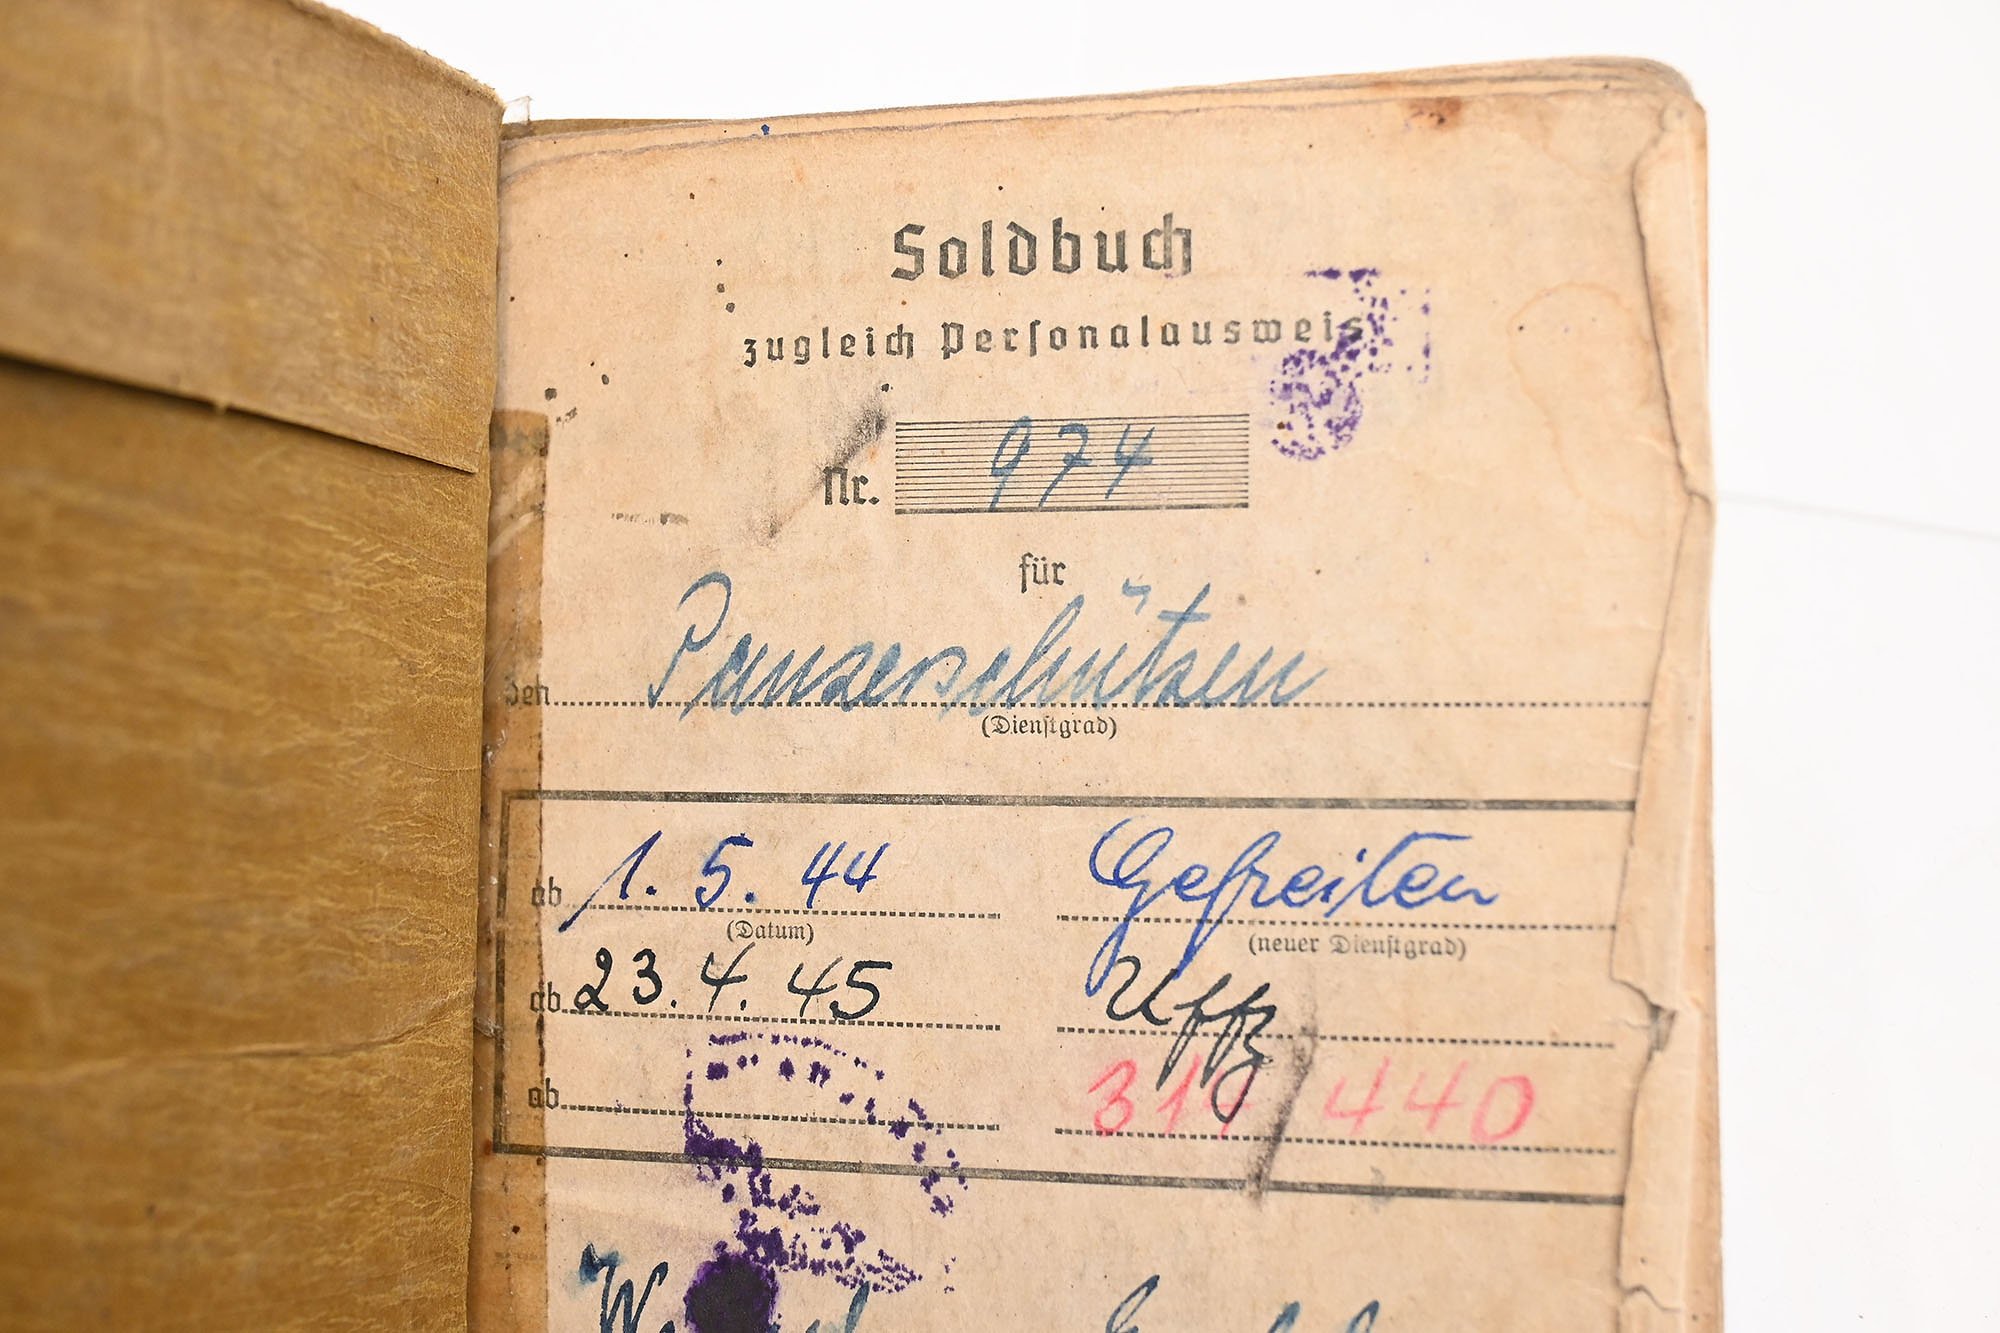 Soldbuch
zugleich Personalausweis
Nr. 974
für
den Panzerschützen
(Dienstgrad)
ab 1. 5. 44 Gefreiten
(Datum) (neuer Dienstgrad)
ab 23. 4. 45 Uffz
ab 440